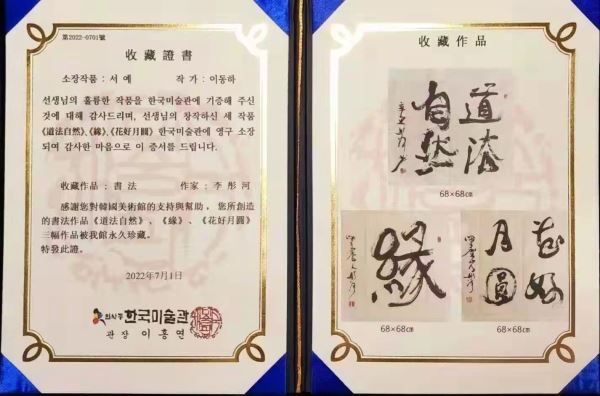 第2022-0701號
收藏證書
소장작품 : 서예 작가 : 이동하
선생님의 훌륭한 작품을 한국미술관에 기증해 주신
것에 대해 감사드리며, 선생님의 창작하신 세 작품
《道法自然》、《緣》、《花好月圓》 한국미술관에 영구 소장
되며 감사한 마음으로 이 증서를 드립니다.
收藏作品：書法 作家：李彤河
感謝您對韓國美術館的支持與幫助，您所創造
的書法作品《道法自然》、《緣》、《花好月圓》
三幅作品被我館永久珍藏。
特發此證。
2022年7月1日
인사동 한국미술관
관장 이홍연
收藏作品
道法
自然
68×68㎝
緣
68×68㎝
花好
月圓
68×68㎝